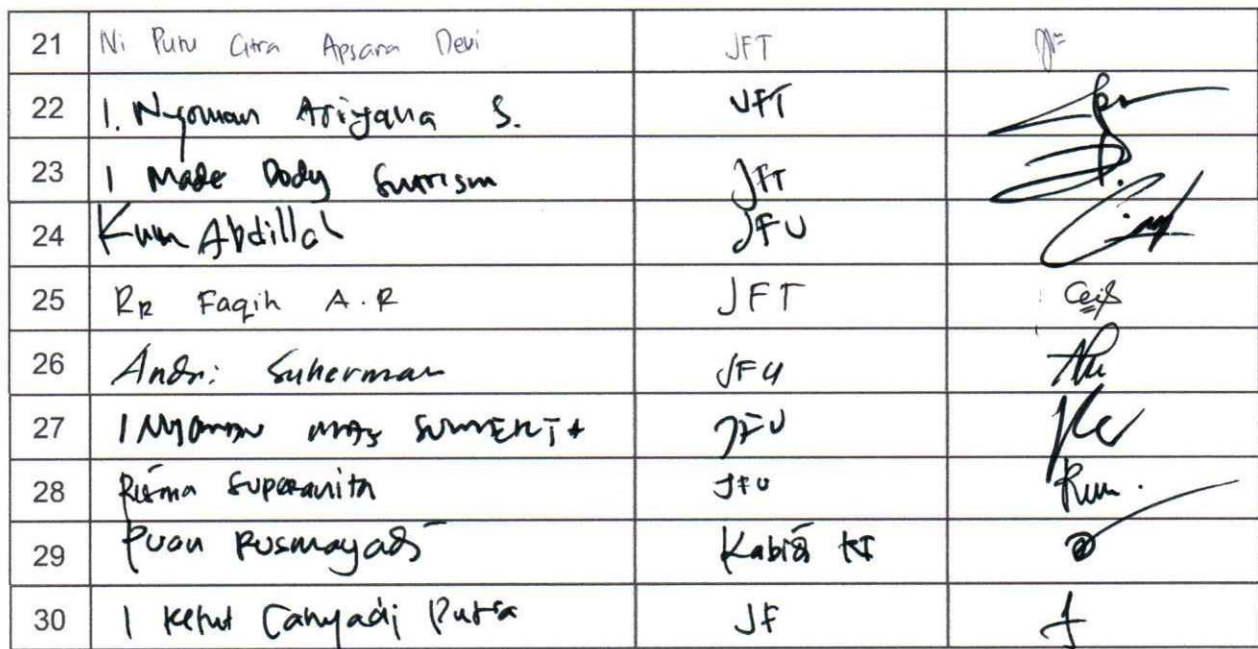 21 Ni Putu Citra Apsara Devi JFT
22 I. Nyoman Ariyana S. JFT
23 I Made Dody JFT
24 Abdillah JFU
25 RR Faqih A.R JFT
26 Andri Suherman JFU
27 I Nyoman Mas Sumerta JFU
28 Risma Superanita JFU
29 Puan Rusmayadi Kabid KI
30 I Ketut Cahyadi Putra JF